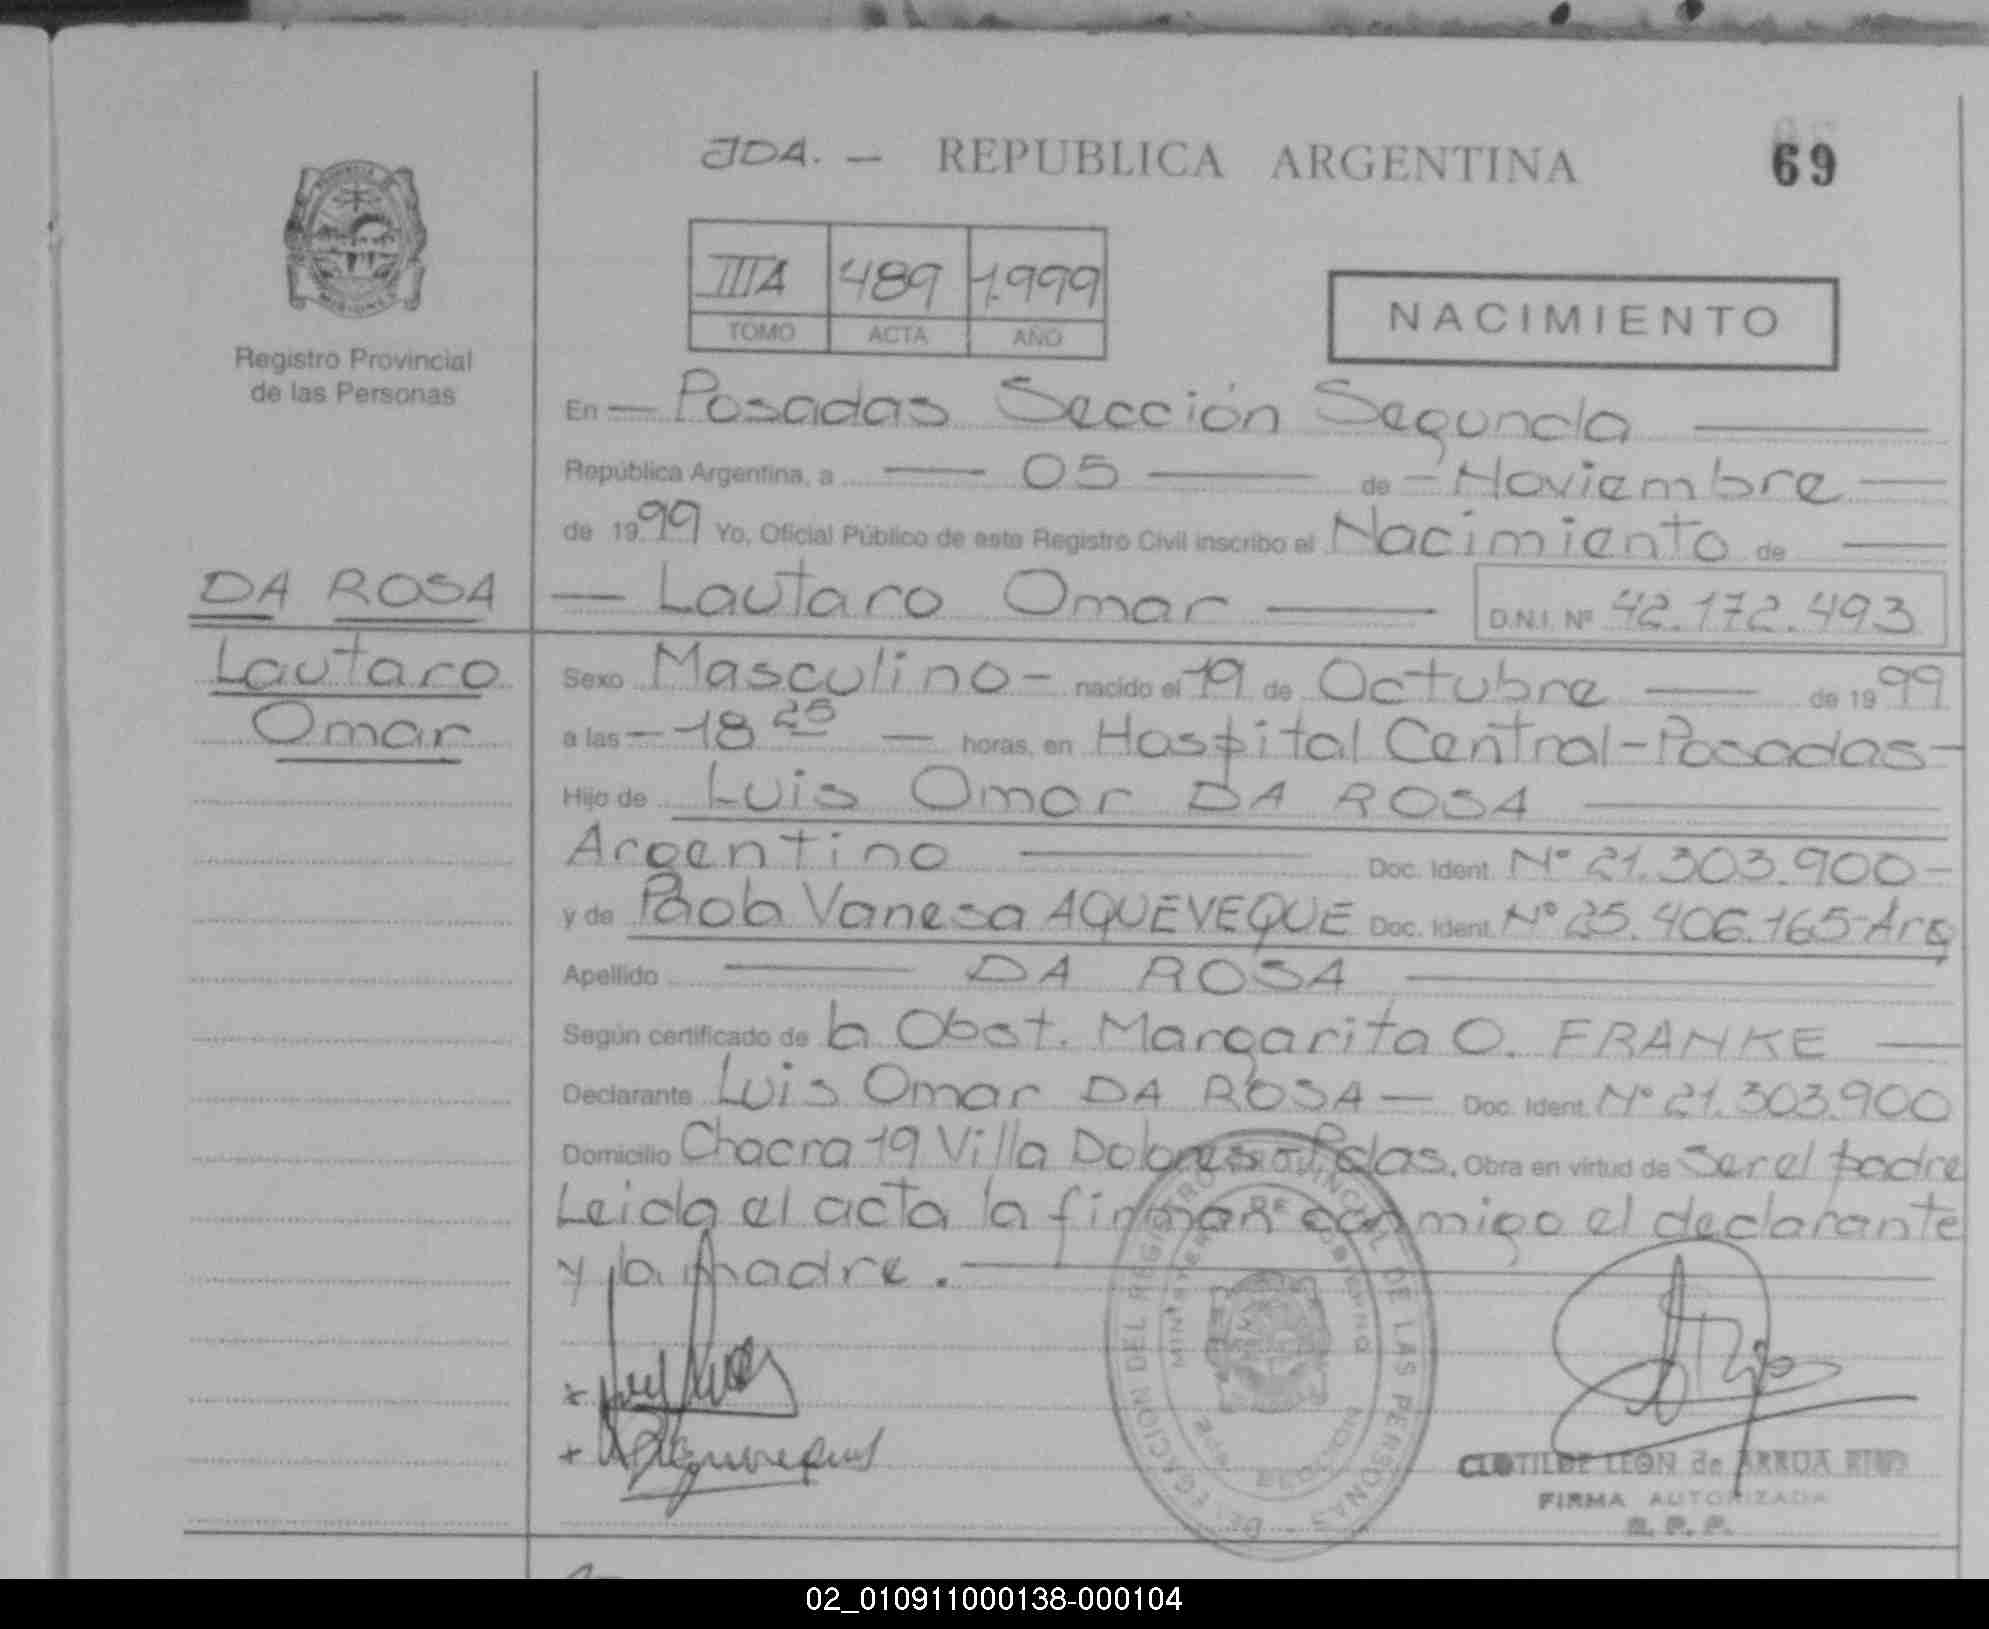 JDA. — REPUBLICA ARGENTINA
69
IIIA 489 1.999
TOMO ACTA AÑO
NACIMIENTO
Registro Provincial
de las Personas
En — Posadas Sección Segunda —
República Argentina, a — 05 — de — Noviembre —
de 1999 Yo, Oficial Público de este Registro Civil inscribo el Nacimiento de —
DA ROSA
— Lautaro Omar — D.N.I. Nº 42.172.493
Lautaro
Omar
Sexo Masculino - nacido el 19 de Octubre — de 1999
a las - 18 25 — horas, en Hospital Central - Posadas -
Hijo de Luis Omar DA ROSA —
Argentino — Doc. Ident. Nº 21.303.900 -
y de Paola Vanesa AQUEVEQUE Doc. Ident. Nº 25.406.165 - Arg
Apellido — DA ROSA —
Según certificado de la Obst. Margarita O. FRANKE —
Declarante Luis Omar DA ROSA — Doc. Ident. Nº 21.303.900
Domicilio Chacra 19 Villa Dolores - Pdas. Obra en virtud de Ser el padre
Leida el acta la firman conmigo el declarante
y la madre. —
DELEGACION DEL REGISTRO PROVINCIAL DE LAS PERSONAS
MINISTERIO DE GOBIERNO
CLOTILDE LEON de ARRUA
FIRMA AUTORIZADA
R. P. P.
02_010911000138-000104